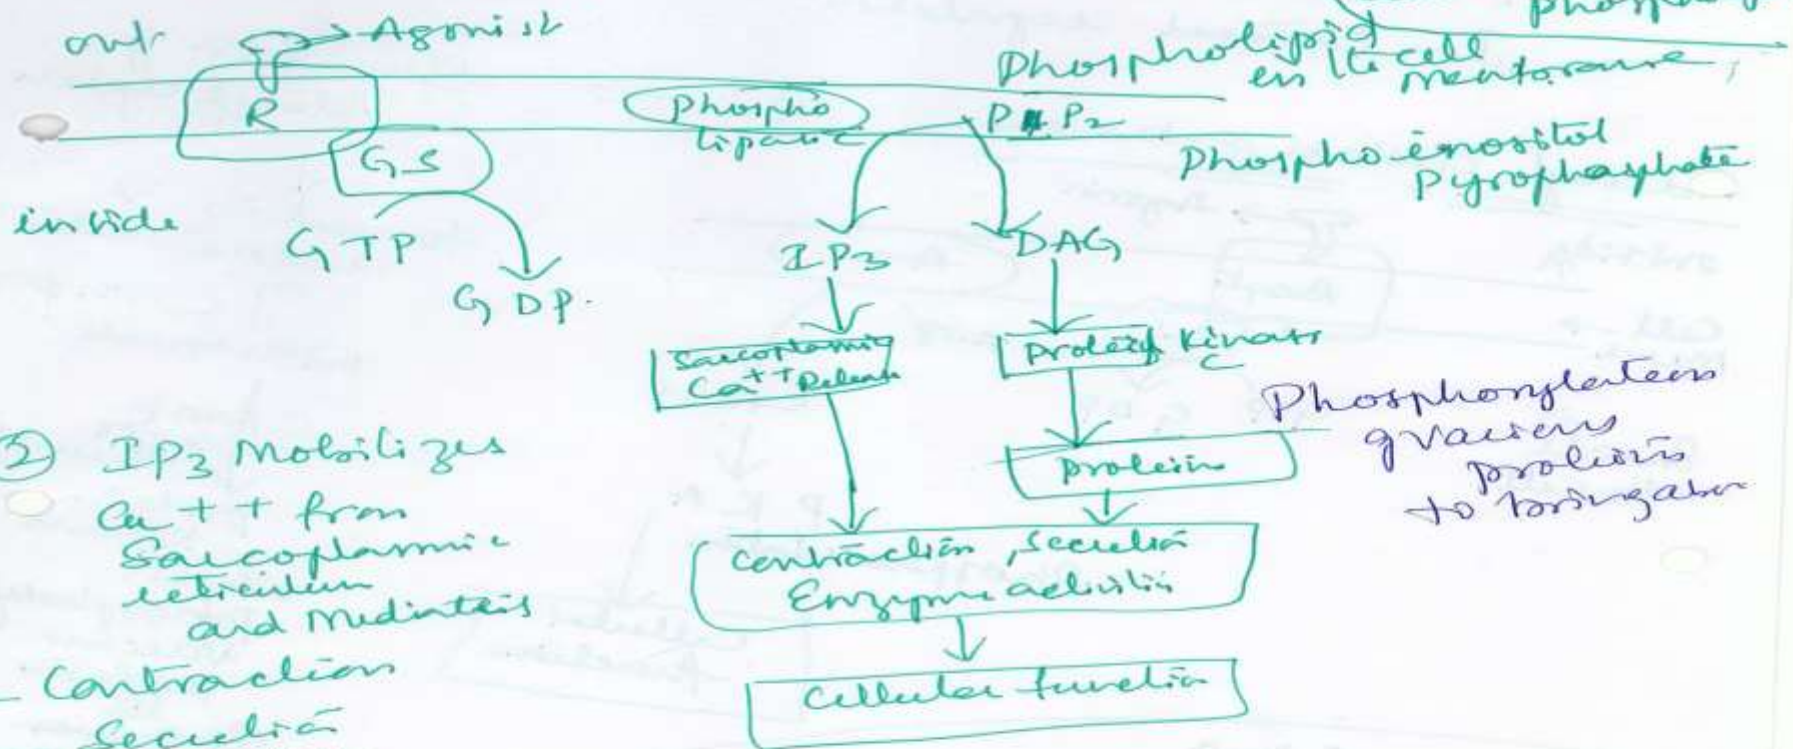 out
Agonist
R
GS
inside
GTP
GDP.
Phospho
lipase
Phospholipid
in the cell
membrane,
PIP2
Phospho inositol
Pyrophosphate
IP3
DAG
Sarcoplasmic
Ca++ Release
Protein Kinase
C
Phosphorylates
various
proteins
to bring about
protein
Contraction, Secretion
Enzyme activities
Cellular function
2) IP3 Mobilizes
Ca++ from
Sarcoplasmic
reticulum
and Mediates
- Contraction
Secretion